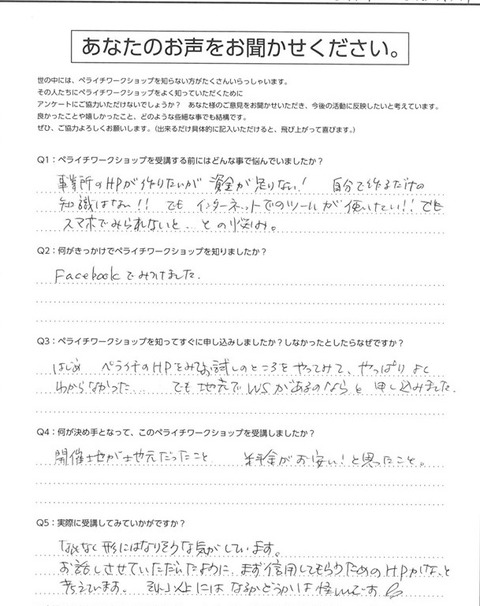 あなたのお声をお聞かせください。
世の中には、ペライチワークショップを知らない方がたくさんいらっしゃいます。
その人たちにペライチワークショップをよく知っていただくために
アンケートにご協力いただけないでしょうか？ あなた様のご意見をお聞かせいただき、今後の活動に反映したいと考えています。
良かったことや嬉しかったこと、どのような些細な事でも結構です。
ぜひ、ご協力よろしくお願いします。（出来るだけ具体的に記入いただけると、飛び上がって喜びます。）
Q1：ペライチワークショップを受講する前にはどんな事で悩んでいましたか？
事業所のHPが作りたいが 資金が足りない！ 自分で作るだけの
知識はない！！ でも インターネットでのツールが使いたい！！でも
スマホでみられないと、との悩み。
Q2：何がきっかけでペライチワークショップを知りましたか？
Facebookでみつけました。
Q3：ペライチワークショップを知ってすぐに申し込みしましたか？しなかったとしたらなぜですか？
はじめ ペライチのHPをみてお試しのところをやってみて、やっぱりよく
わからなかった… でも地元でWSがあるのならと 申し込みました。
Q4：何が決め手となって、このペライチワークショップを受講しましたか？
開催地が地元だったこと 料金がお安い！と思ったこと。
Q5：実際に受講してみていかがですか？
なんとなく形にはなりそうな気がしています。
お話しさせていただいたように、まず信用してもらうためのHPかな、と
考えています。それ以上には なるかどうかは怪しいんです